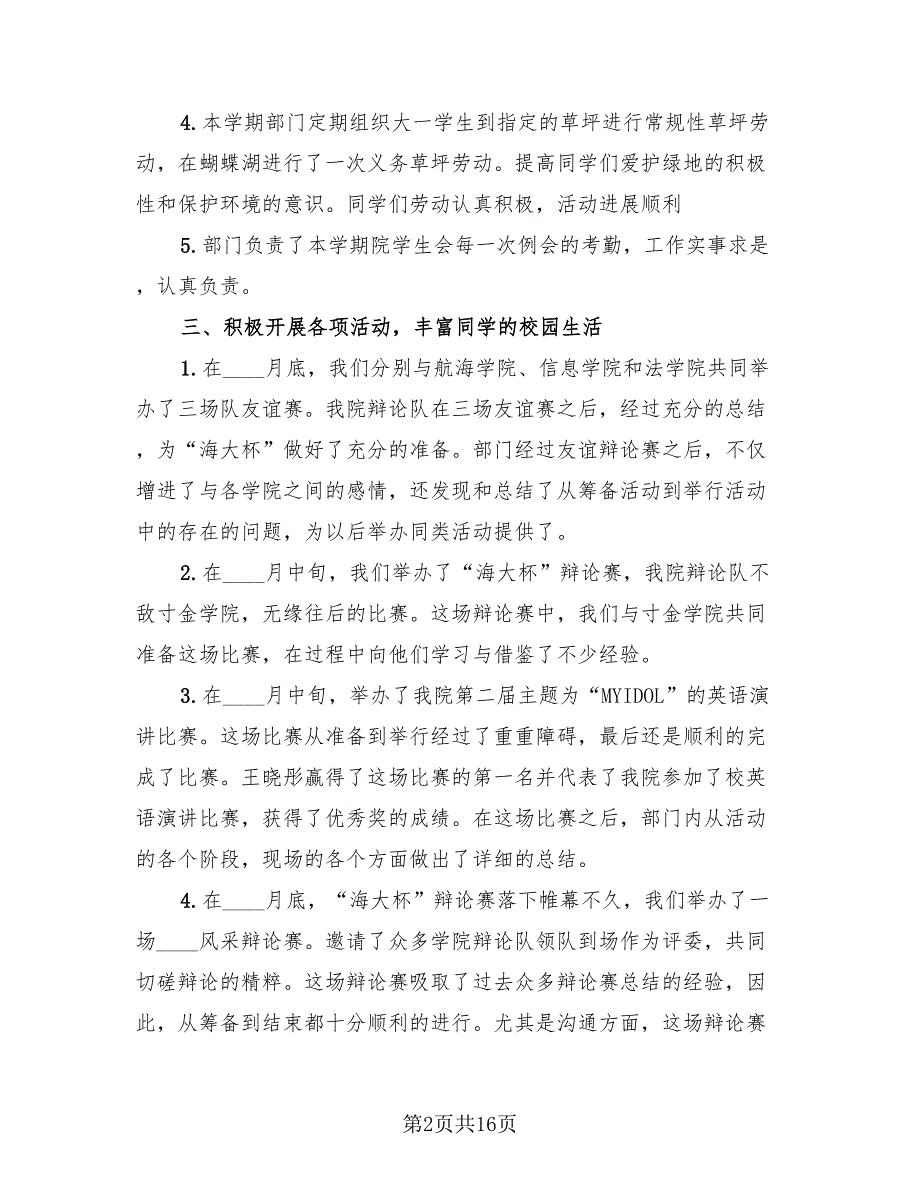 4. 本学期部门定期组织大一学生到指定的草坪进行常规性草坪劳
动，在蝴蝶湖进行了一次义务草坪劳动。提高同学们爱护绿地的积极
性和保护环境的意识。同学们劳动认真积极，活动进展顺利
5. 部门负责了本学期院学生会每一次例会的考勤，工作实事求是
，认真负责。
三、积极开展各项活动，丰富同学的校园生活
1. 在____月底，我们分别与航海学院、信息学院和法学院共同举
办了三场队友谊赛。我院辩论队在三场友谊赛之后，经过充分的总结
，为“海大杯”做好了充分的准备。部门经过友谊辩论赛之后，不仅
增进了与各学院之间的感情，还发现和总结了从筹备活动到举行活动
中的存在的问题，为以后举办同类活动提供了。
2. 在____月中旬，我们举办了“海大杯”辩论赛，我院辩论队不
敌寸金学院，无缘往后的比赛。这场辩论赛中，我们与寸金学院共同
准备这场比赛，在过程中向他们学习与借鉴了不少经验。
3. 在____月中旬，举办了我院第二届主题为“MYIDOL”的英语演
讲比赛。这场比赛从准备到举行经过了重重障碍，最后还是顺利的完
成了比赛。王晓彤赢得了这场比赛的第一名并代表了我院参加了校英
语演讲比赛，获得了优秀奖的成绩。在这场比赛之后，部门内从活动
的各个阶段，现场的各个方面做出了详细的总结。
4. 在____月底，“海大杯”辩论赛落下帷幕不久，我们举办了一
场____风采辩论赛。邀请了众多学院辩论队领队到场作为评委，共同
切磋辩论的精粹。这场辩论赛吸取了过去众多辩论赛总结的经验，因
此，从筹备到结束都十分顺利的进行。尤其是沟通方面，这场辩论赛
第2页共16页